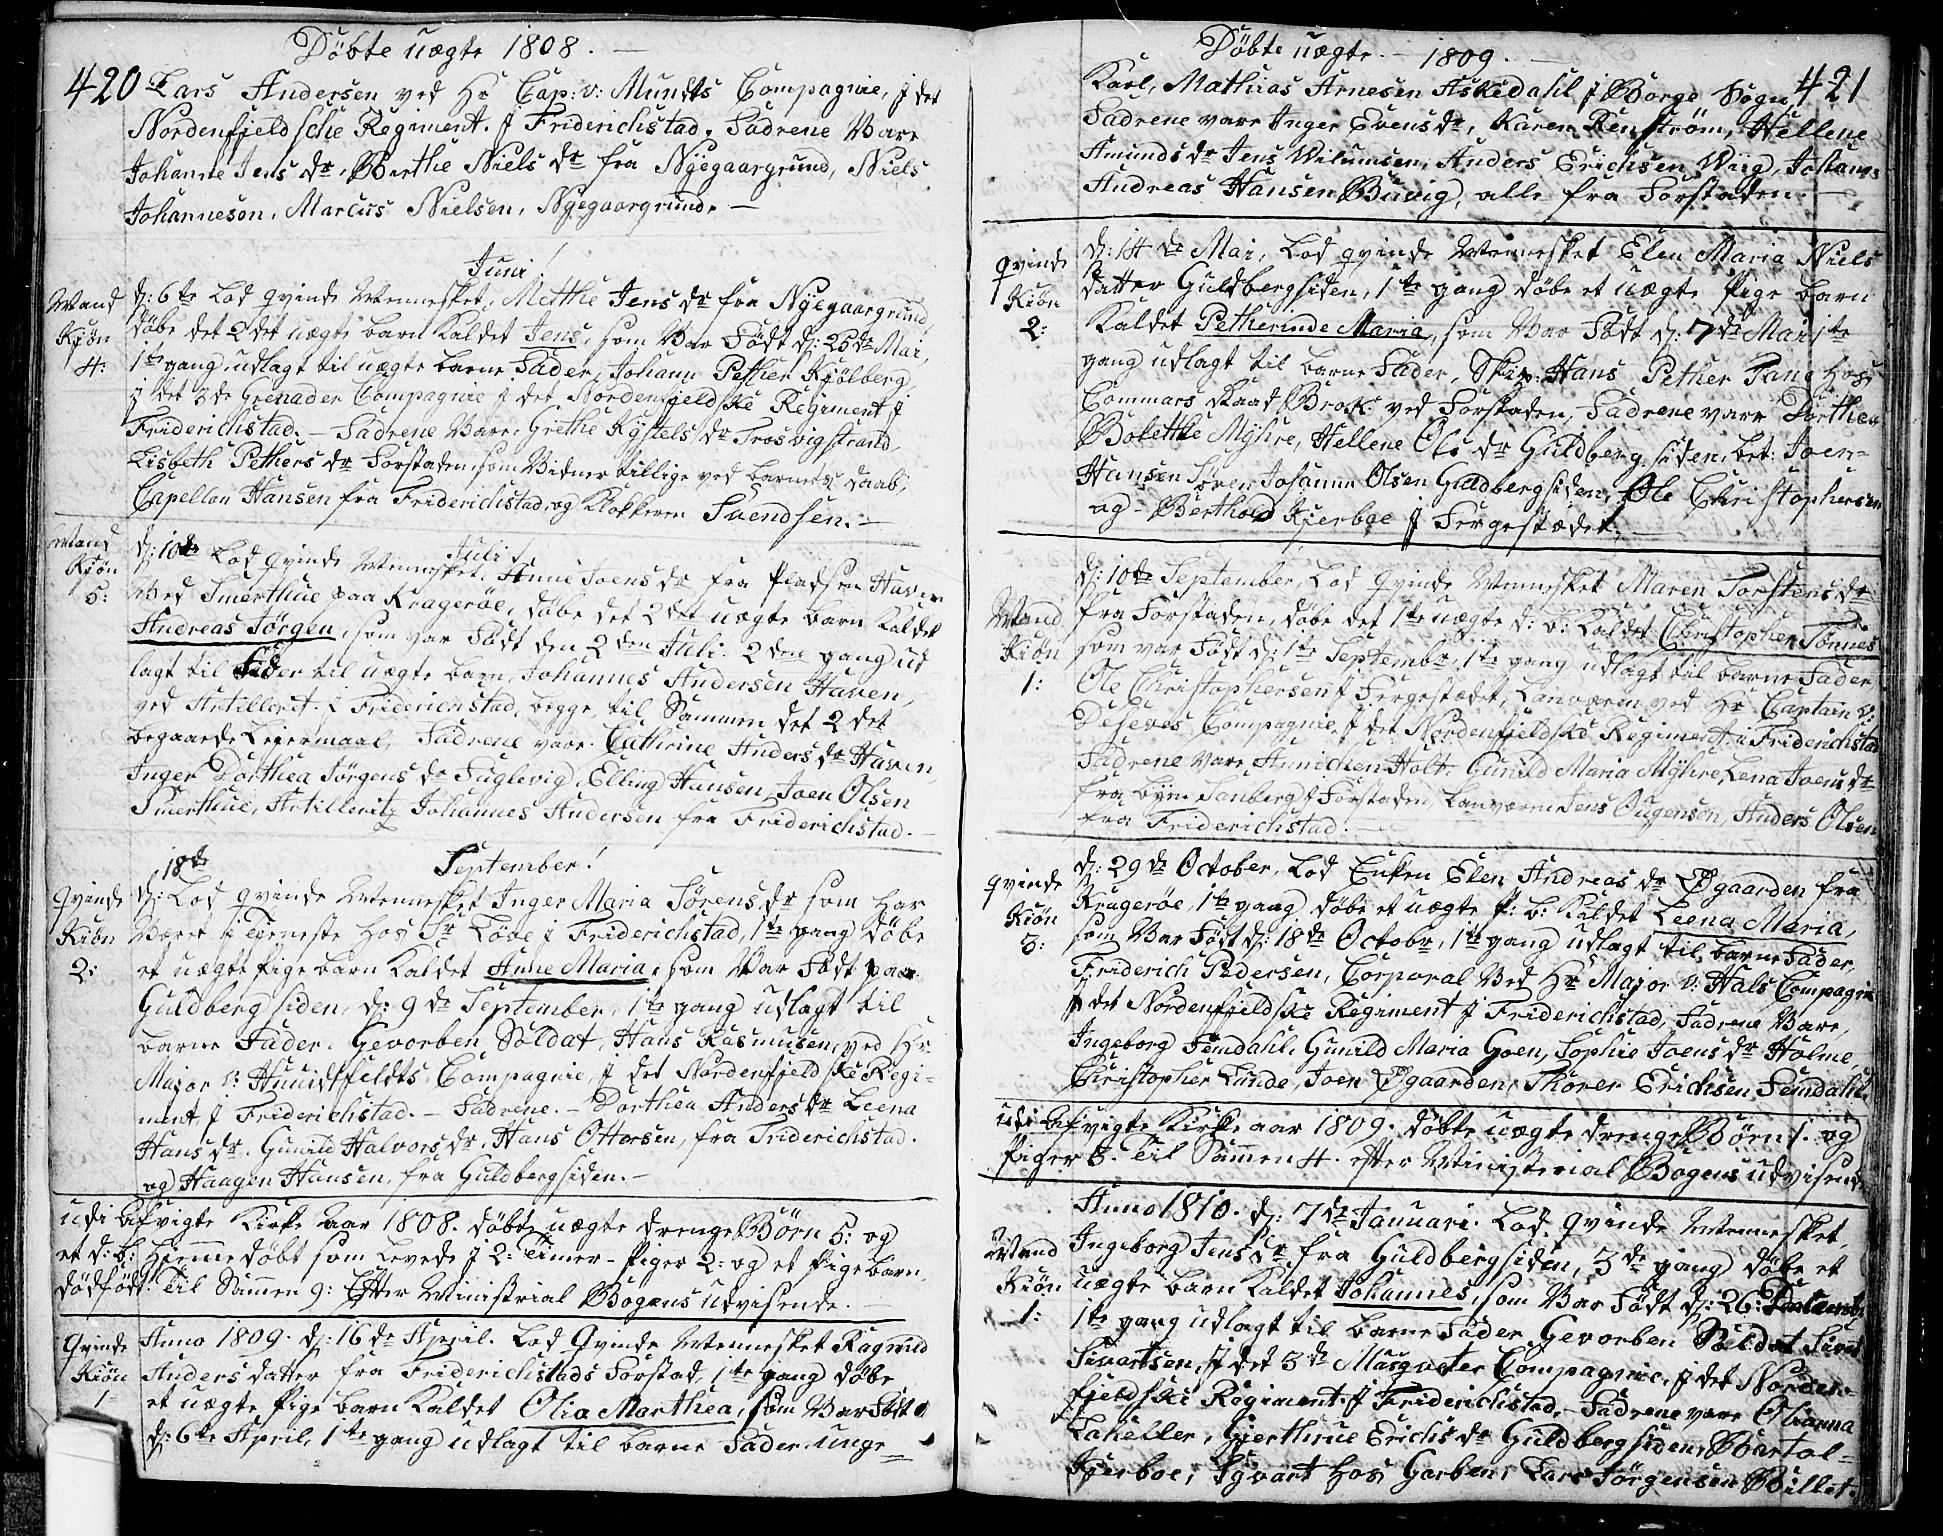 Døbte uægte 1808.
420 Lars Andersen ved Hr Cap: v: Mundts Compagnie, j det
Nordenfjeldsche Regiment. J Friderichstad, Fadrene Vare
Johanne Jens dr, Berthe Niels dr fra Nyegaargrund, Niels
Johannesen, Marcus Nielsen, Nyegaargrund.
Juni!
Mand Kiøn 4: d: 6te Lod qvinde Mennesket, Metthe Jens dr fra Nyegaargrund
døbe det 2det uægte barn kaldet Jens, som Var Født d: 25de Mai,
1te gang udlagt til uægte barne Fader, Johann Pether Kjølberg,
j det 3de Grenader Compagnie j det Nordenfjeldske Regiment j
Friderichstad. – Fadrene Vare, Grethe Kystels dr Trosvigstrand
Lisbeth Pethers dr Forstaden, som Vidner tillige ved barnets daab,
Capellan Hansen fra Friderichstad, og Klokkeren Svendsen. –
Juli!
Mand Kiøn 5: d: 10de Lod qvinde Mennesket, Anne Joens dr fra Pladsen Haven
Ved Smerthue paa Kragerøe, døbe det 2det uægte barn kaldet
Andreas Jørgen, som var Født den 2den Juli. 2den gang ud
lagt til Fader til uægte barn, Johannes Andersen Haven,
ved Artillerit. j Friderichstad, begge til Sammen det 2det
begaaede Leiermaal, Fadrene vare. Cathrine Anders dr Haven
Inger Dorthea Jørgens dr Fuglevig, Elling Hansen, Joen Olsen
Smerthue, Artillerist Johannes Andersen fra Friderichstad. –
September!
18de
Qvinde Kiøn 2: d: Lod qvinde Mennesket Inger Maria Sørens dr som har
Været j Tjeneste hos Hr Løve j Friderichstad, 1te gang døbe
et uægte Pige barn kaldet Anne Maria, som Var Født paa
Guldbergsiden, d: 9de September, 1te gang udlagt til
barne Fader. Gevorben Soldat, Hans Rasmusen, ved Hr
Major v: Huuidtfeldts Compagnie, j det Nordenfjeldske Regi-
ment, j Friderichstad. – Fadrene. – Dorthea Anders dr Leena
Hans dr. Gunild Halvors dr. Hans Ottersen, fra Friderichstad.
og Haagen Hansen, fra Guldbergsiden. –
udi bfvigte Kirke Aar 1808. døbte uægte drenge Børn 5: og
et d: b: Hjemme døbt som Levede j 2: Timer – Piger 2: og et Pigebarn
dødfødt. Til Sammen 9: Efter Ministrial Bogens udvisende. –
Qvinde Kiøn 1 Anno 1809. d: 16de April. Lod Qvinde Mennesket Ragnild
Anders datter fra Friderichstads Forstad, 1te gang døbe
et uægte Pige barn kaldet Olia Marthea, som Var Født
d: 6te April, 1te gang udlagt til barne Fader unge=
Døbte uægte. – 1809.
421 Karl, Mathias Arnesen Askedahl j Borge Sogn
Fadrene vare Inger Evens dr, Karen Renstrøm, Hellene
Amunds dr Jens Wilumsen, Anders Erichsen Wiig, Johan
Andreas Hansen Buuig, alle fra Forstaden. –
Qvinde Kiøn 2: d: 14de Mai, Lod qvinde Mennesket Elen Maria Niels
datter Guldbergsiden, 1te gang døbe et uægte Pige barn
Kaldet Petherinde Maria, som Var Født d: 7de Mai 1te
gang udlagt til barne Fader, Skip: Hans Pether Tang hos
Commars Raad Brock ved Forstaden, Fadrene vare Dorthea
Bolettke Myhre, Hellene Ols dr Guldbergsiden, bet: Joen-
Hansen Løren, Johann Olsen Guldbergsiden, Ole Christophersen
og – Berthold Kjerboe j Fergestædet.
Mand Kiøn 1: d: 10de September, Lod Qvinde Mennesket Maren Torstens dr
fra Forstaden, døbe det 1te uægte d: b: kaldet Christopher Tønnes
som var Født d: 1te Septembr, 1te gang udlagt til barne Fader
Ole Christophersen j Fergestædet, Landværn ved Hr Captain v:
Deseves Compagnie, j det Nordenfjeldske Regiment. i Friderichstad
Fadrene Vare Annichen Holt. Gunild Maria Myhre, Lena Joens dr
fra byen Tanberg j Forstaden, Landværn Jens Ougensen, Anders Olsen
fra Friderichstad. –
Qvinde Kiøn 3: d: 29de October, Lod Enken Elen Andreas dr Øgaarden fra
Kragerøe, 1te gang døbe et uægte P: b: kaldet Leena Maria,
som Var Født d: 18de Octobr, 1te gang udlagt til barne Fader,
Friderich Pedersen, Corporal Ved Hr Major v: Hals Compagni
j det Nordenfjeldske Regiment j Friderichstad, Fadrene Vare,
Ingeborg Femdahl, Gunild Maria Goen, Sophie Joens dr Holme
Christopher Lunde, Joen Øgaarden, Thorer Erichsen Femdahl.
udi bfvigte Kirke aar 1809. døbte uægte drenge Børn 1. og
Piger 3. Til Sammen 4. efter Ministerial Bogens udvisende
Anno 1810. d: 7de Januari. Lod Qvinde Mennesket
Mand Kiøn 1: Ingeborg Jens dr fra Guldbergsiden, 3de gang døbe et
uægte barn kaldet Johannes, som Var Født d: 26:
1te gang udlagt til barne Fader Gevorben Soldat Sivert
Sivartsen, j det 3de Musqueter Compagnie, j det Norden-
fjeldske Regiment. j Friderichstad. – Fadrene vare Olianna
Lakeller, Gjerthrue Erichs dr Guldbergsiden, Bartol-
Kjerboe, Sgvart hos Garben, Lars Jørgensen Billet.